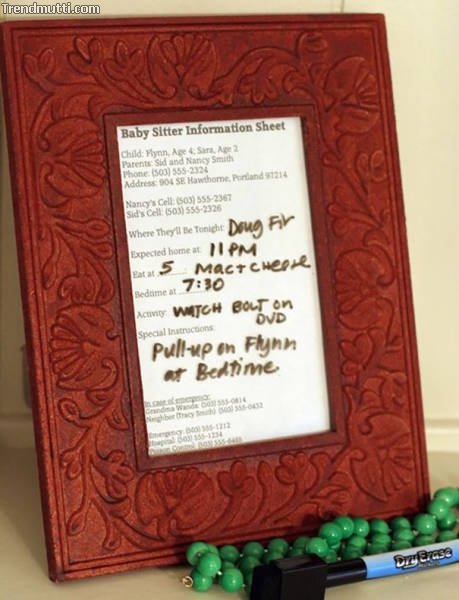 Trendmutti.com
Baby Sitter Information Sheet
Child: Flynn, Age 4; Sara, Age 2
Parents: Sid and Nancy Smith
Phone: (503) 555-2324
Address: 904 SE Hawthorne, Portland 97214
Nancy's Cell: (503) 555-2367
Sid's Cell: (503) 555-2326
Where They'll Be Tonight: Doug Fir
Expected home at 11 PM
Eat at 5 Mac + Cheese
Bedtime at 7:30
Activity: WATCH BOLT on
DVD
Special Instructions:
Pull-up on Flynn
at Bedtime
In case of emergency:
Grandma Wanda: (503) 555-0814
Neighbor (Tracy Smith) (503) 555-0432
Emergency: (503) 555-1212
Hospital: (503) 555-1234
Poison Control: (503) 555-6465
Dry Erase